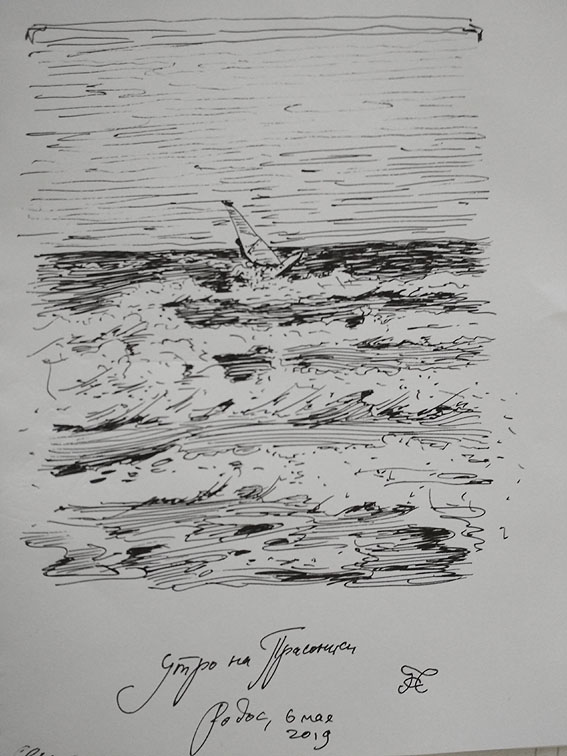 Утро на Прасониси
Родос, 6 мая
2019